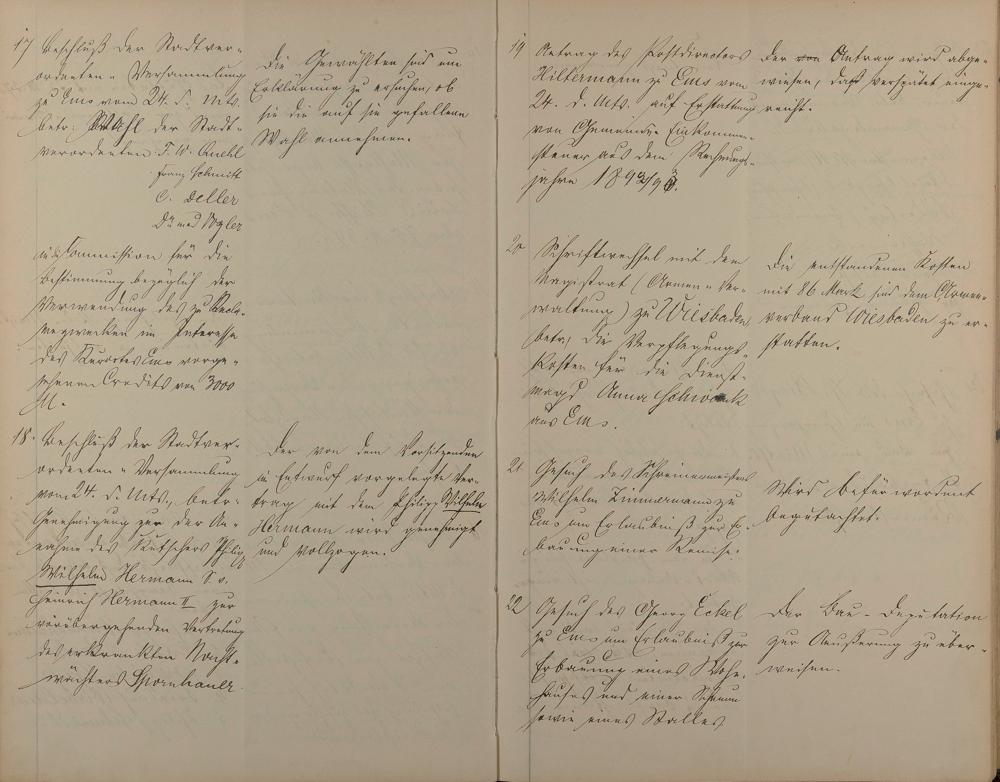 17 Beschluß der Stadtver-
ordneten-Versammlung
zu Ems vom 24. d. Mts.
betr. Wahl der Stadt-
verordneten F. W. Quehl
Franz Schmitt
C. Deller
Dr. med Vogler
in die Commission für die
Bestimmung bezüglich der
Verwendung des zu
im Interesse
des Kurortes Ems vorge-
sehenen Credits von 3000
M.
Die Gewählten sind um
Erklärung zu ersuchen, ob
sie die auf sie gefallene
Wahl annehmen.
18. Beschluß der Stadtver-
ordneten-Versammlung
vom 24. d. Mts., betr.
Genehmigung zur der An-
nahme des Kutschers Philipp
Wilhelm Hermann S. v.
Heinrich Hermann II zur
vorübergehenden Vertretung
des erkrankten Nacht-
wächters Spornhauer.
Der von dem Vorsitzenden
in Entwurf vorgelegte Ver-
trag mit dem Philipp Wilhelm
Hermann wird genehmigt
und vollzogen.
19 Antrag des Postdirectors
Hiltermann zu Ems vom
24. d. Mts. auf Erstattung
von Gemeinde-Einkommen-
steuer aus dem Rechnungs-
jahre 1892/93.
Der Antrag wird abge-
wiesen, da verspätet einge-
reicht.
20 Schriftwechsel mit dem
Magistrat (Armen-Ver-
waltung) zu Wiesbaden,
betr. die Verpflegungs-
kosten für die Dienst-
magd Anna
aus Ems.
Die entstandenen Kosten
mit 86 Mark sind dem Armen-
verband Wiesbaden zu er-
statten.
21 Gesuch des Schreinermeisters
Wilhelm Zimmermann zu
Ems um Erlaubniß zur Er-
bauung einer Remise.
Wird befürwortend
begutachtet.
22 Gesuch des Georg Eckel
zu Ems um Erlaubniß zur
Erbauung eines Wohn-
hauses und einer Scheune
sowie eines Stalles
Der Bau-Deputation
zur Aeußerung zu über-
weisen.